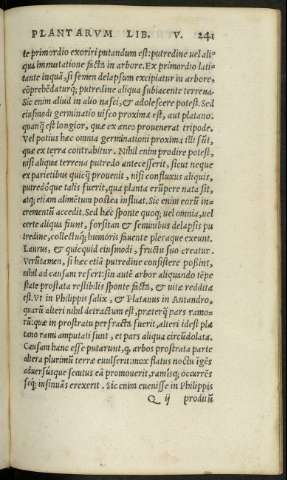 PLANTARVM LIB. V. 241
te primordio exoriri putandum est: putredine uel ali-
qua immutatione facta in arbore. Ex primordio lati-
tante inquã, si semen delapsum excipiatur in arbore,
cõprehẽdaturq́;, putredine aliqua subiacente terrena.
Sic enim aliud in alio nasci, & adolescere potest. Sed
eiusmodi germinatio uisco proxima est, aut platano:
quanq̃ est longior, quæ ex æneo prouenerat tripode.
Vel potius hæc omnia germinationi proxima illi sũt,
quæ ex terra contrahitur. Nihil enim prodire potest,
nisi aliqua terrena putredo antecesserit, sicut neque
ex parietibus quicq̃ prouenit, nisi confluxus aliquis,
putredóque talis fuerit, quæ planta erũpere nata sit,
atq; etiam alimẽtum postea influat. Sic enim eorũ in-
crementũ accedit. Sed hæc sponte quoq; uel omnia, uel
certe aliqua fiunt, forsitan & seminibus delapsis pu
tredine, collectuq; humoris fauente pleraque exeunt.
Laurus, & quæcquid eiusmodi, fructu suo creatur.
Verũtamen, si hæc etiã putredine consistere possint,
nihil ad causam refert: sin autẽ arbor aliquando tẽpe
state prostata restibilis sponte facta, & uitæ reddita
est. Vt in Philippis salix, & Platanus in Antandro,
quarũ alteri nihil detractum est, præterq̃ pars ramo-
rũ: quæ in prostratu perfracta fuerit, alteri idest pla
tano rami amputati sunt, et pars aliqua circũdolata.
Causam hanc esse putarunt, q̃ arbos prostrata parte
altera plurimũ terræ euulserit: mox flatus noctu igẽs
aduersusque secutus eã promouerit, ramisq; occurrẽs
seq; insinuãs erexerit. Sic enim euenisse in Philippis
Q ij proditũ